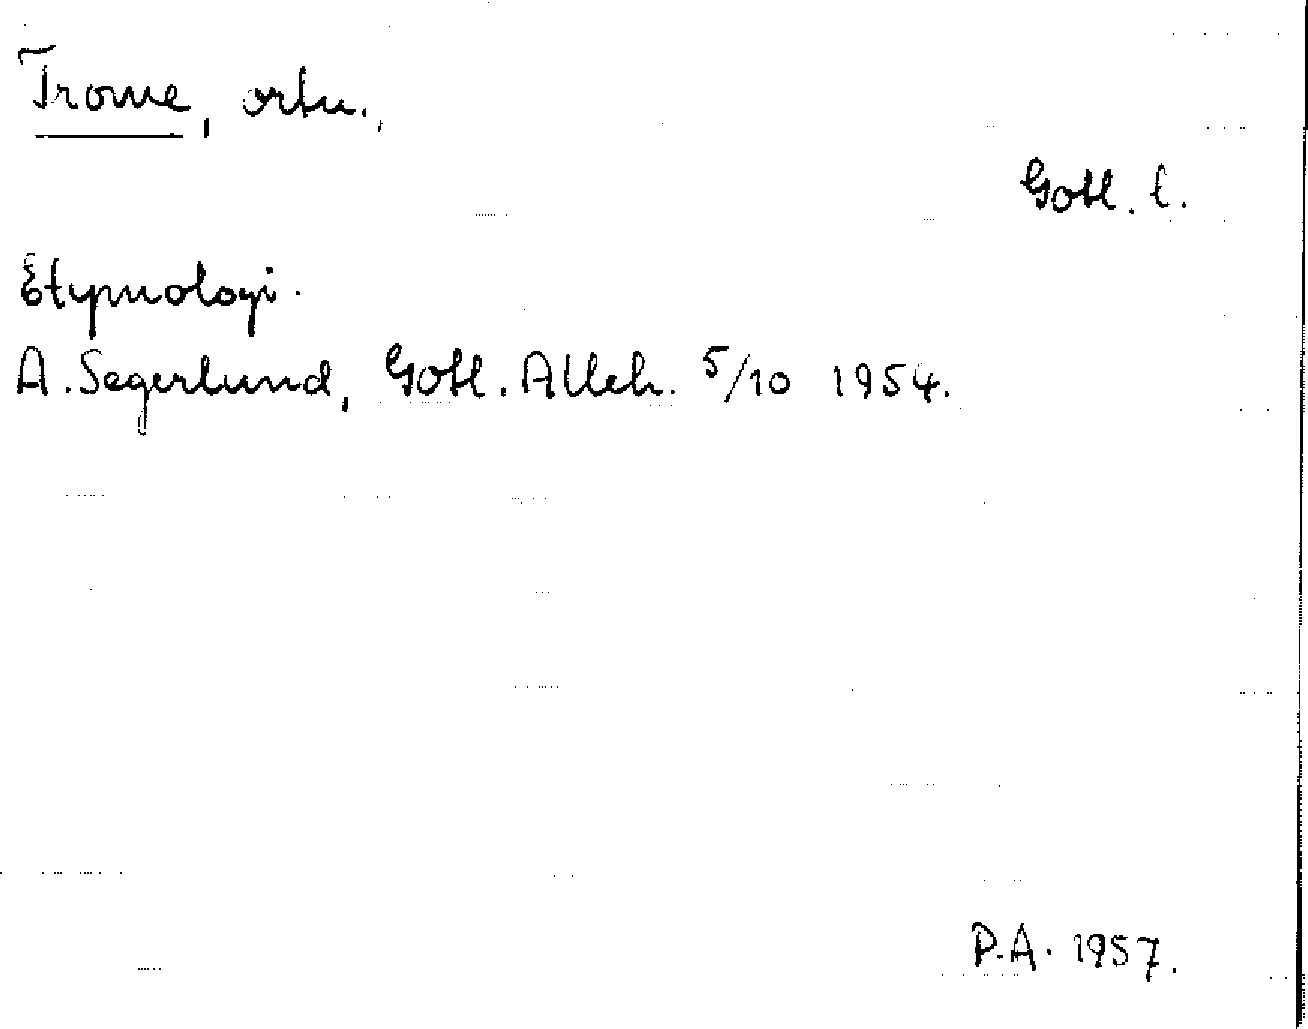 Trome, ortn.,
Gotl. l.
Etymologi.
A. Segerlund, Gotl. Alleh. 5/10 1954.
P.A. 1957.